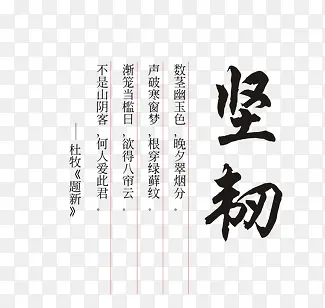 坚韧
数茎幽玉色，晚夕翠烟分。
声破寒窗梦，根穿绿藓纹。
渐笼当槛日，欲得八帘云。
不是山阴客，何人爱此君。
——杜牧《题新》